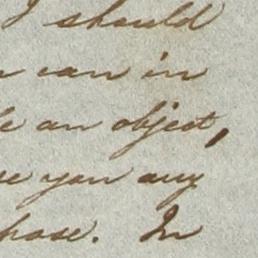 I should
can in
an object,
you any
In